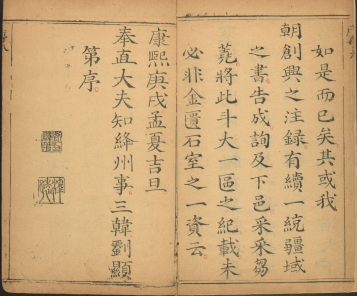 如是而已矣其或我
朝創興之注録有續一統疆域
之書告成詢及下邑采采芻
蕘將此斗大一區之紀載未
必非金匱石室之一資云
康熙庚戌孟夏吉旦
奉直大夫知絳州事三韓劉顯
第序